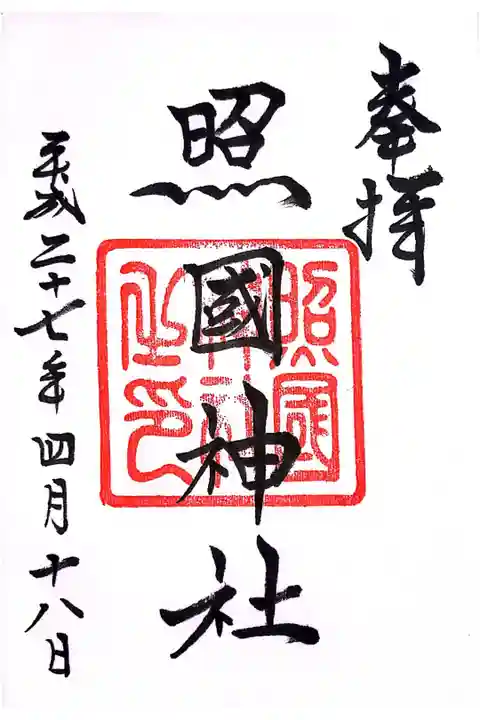 奉拝
照國神社
照国
神社
之印
平成二十七年四月十八日